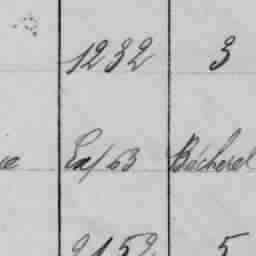 1232 3
Ex/63 Bácherel
2152 5